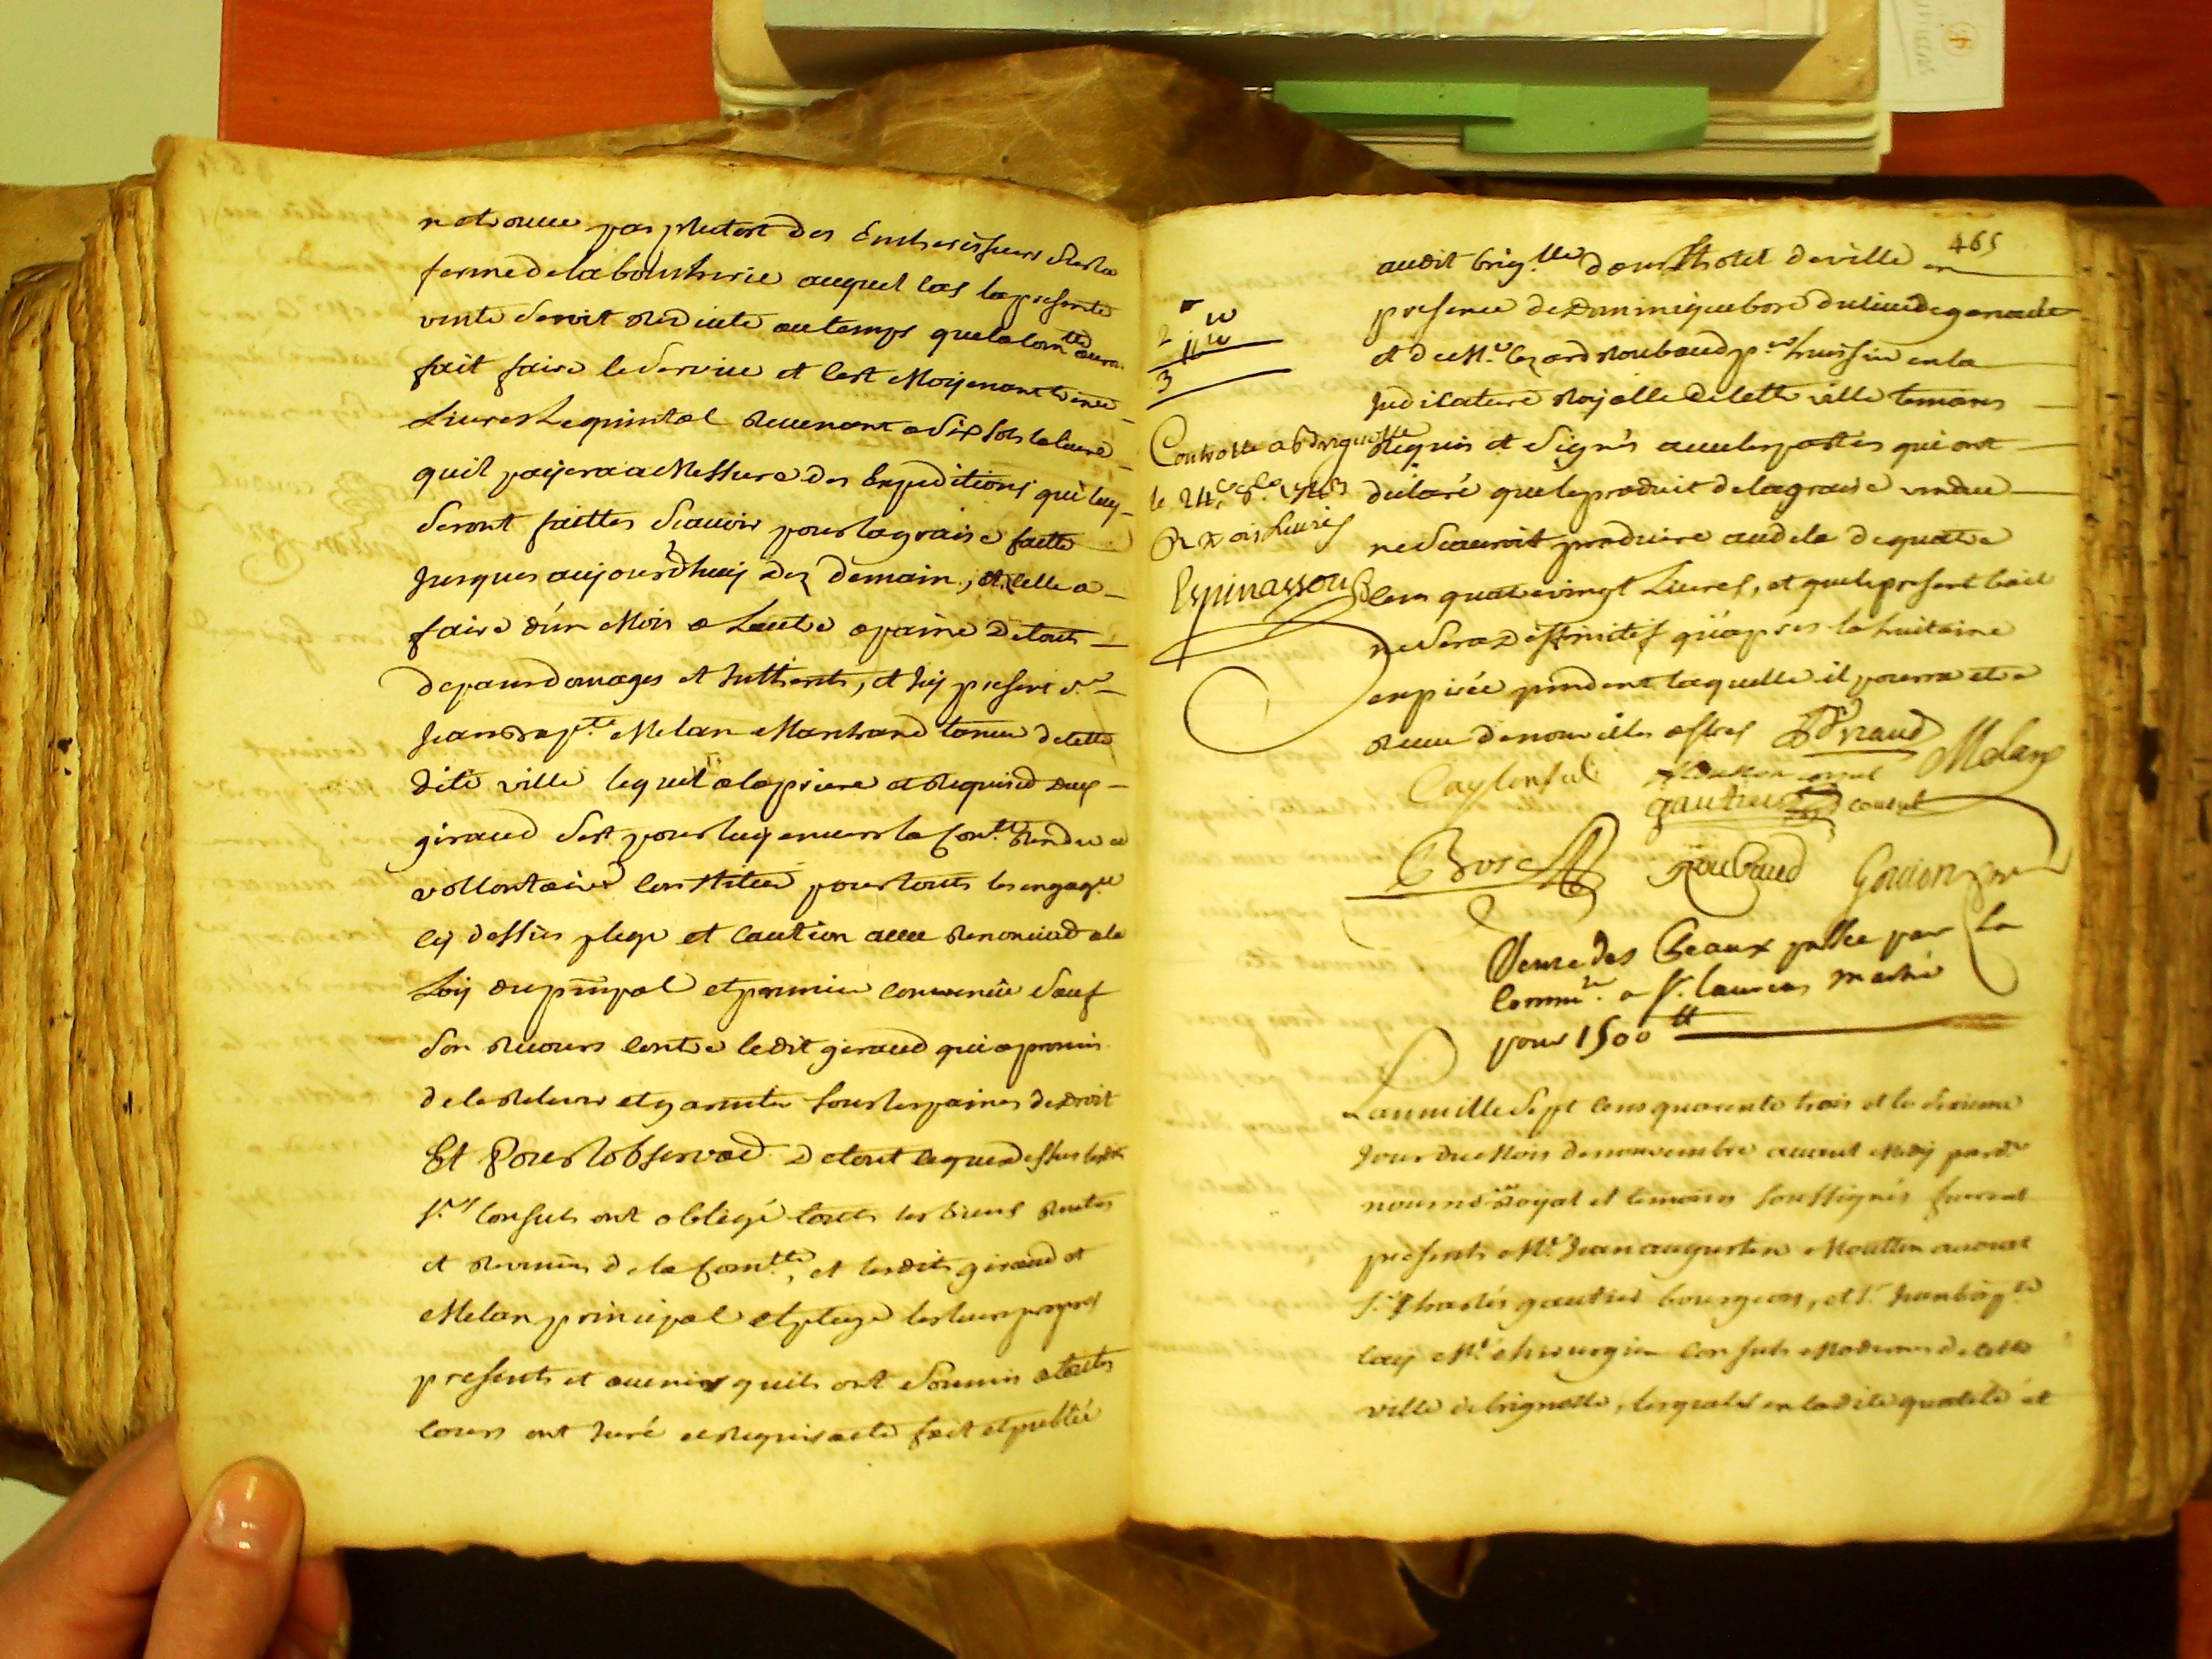 pas plutost des Encherisseurs de la
ferme de la boucherie auquel cas la presente
vente seroit au temps que la com.tté aura
fait faire le service et c'est Moyenant trente
Livres Le quintal Revenant a six sols la livre
quil payera a Messure des Expeditions qui luy
seront faittes scavoir pour la graise faitte
Jusques aujourd'huy dez demain, et celle a
faire d'un Mois a Lautre a paine de touts
depans domages et Intherets, et Icy present s.r
Jean Bap.te Melan Marchand taneur de cette
dite ville lequel a la priere et Requis.on dud.
giraud s'est pour luy envers la Com.tté Rendu et
vollontairem.t Constitué pour touts les engag.ts
cy dessus plege et Caution avec Renonciaon a la
Loy du prinpal et premier convenu sauf
son Recours Contre ledit giraud qui a promis
de le Relever et garantir sous les paines de droit
Et Pour l'observaon de tout ce que dessus lesd.
s.rs Consuls ont obligé touts les biens Rentes
et Revenus de la Com.tté, et lesdits giraud et
Melan principal et plege les leurs propres
presents et avenir quils ont soumis a toutes
Cours ont Juré et Requis acte fait et publié
465
audit brig.lle dans l'hotel de ville en
presence de Dominique bosc du lieu de
et de M.e Roubaud p.er huissier en la
Judicature Royalle de cette ville temoins
Requis et signés avec les parties qui ont
declaré que le produit de la graise vendue
ne scauroit produire au dela de quatre
cens quatrevingt Livres, et que le present bail
ne sera deffinitif qu'apres la huitaine
expirée pendant laquelle il pourra etre
Receu de nouvelles offres Giraud Melan
Caylonsul Moutton consul
gautier consul
Bosc Roubaud Goujon
2
3
Controllé a Brignolle
le 24.e 8.bre 1743
R trois Livres
Espinassou
Vente des Creaux passée par la
Comm.té a s.r Laurens
pour 1500 tt
L'an mille sept cens quarante trois et le
Jour du Mois de novembre avant Midy pard.t
nous no.re Royal et temoins soussignés furent
presents M.e Jean augustin Moutton avocat
s.r Charles gautier bourgeois, et s.r Jean bap.te
Cay M.e chirurgien Consuls Modernes de cette
ville de brignolle, lesquels en ladite qualité et